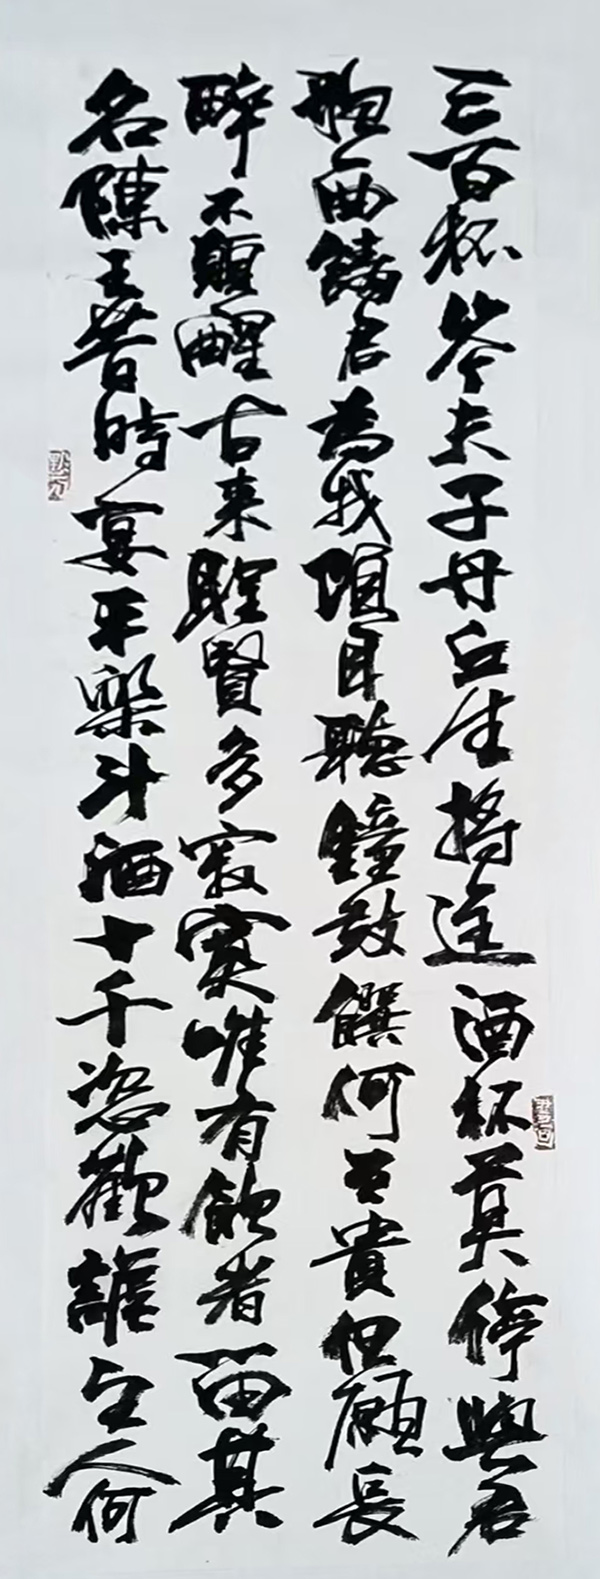 三百杯岑夫子丹丘生將進酒杯莫停與君
歌一曲請君為我傾耳聽鐘鼓饌何足貴但願長
醉不願醒古来聖賢多寂寞唯有飲者留其
名陳王昔時宴平樂斗酒十千恣歡謔主人何